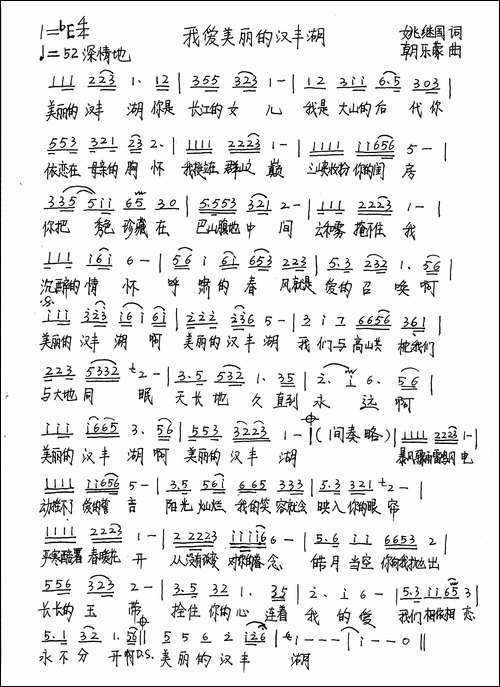 1=bE 4/4 我爱美丽的汉丰湖 姚继国 词
♩=52 深情地 朝乐蒙 曲
1111 223 1· 12 | 355 323 1 - | 12 3ii 6·5 303 |
美丽的汉丰 湖你是 长江的女 儿 我是大山的后 代你
553 321 23 2· | 1111 2223 1 - | 1111 ii656 5 - |
依恋在 母亲的胸 怀 巅 你的闺 房
335 5ii 65 30 | 5·553 321 2 - | 111 2223 1 - |
你把 秀色珍藏在 巴山腹地中 间 云和雾 掩不住 我
1111 i6i 6 - | 56 i 6i 653 223 | 5·3 232 1· 56 |
沉醉的情 怀 呼 的春 风就是 爱的召 唤啊
iii 323 i6i 6i | 222 236 5 - | 3 i 6656 361 |
美丽的汉丰 湖 啊 美丽的汉丰 湖 我们与高山共 枕我们
223 5332 2 - | 3·5 532 1· 35 | 2· i 6· 56 |
与大地同 眠 天长地 久直到永 远 啊
iii i665 3· 56 | 553 3223 1 - | (间奏略) | 1111 2223 1 - |
美丽的汉丰 湖 啊 美丽的汉丰 湖
1111 ii656 5 - | 3·5 56i 665 333 | 5·3 321 2 - |
爱的誓 言 阳光灿烂 我的笑容就会 映入你的眼 帘
1111 2223 1 - | 2 2223 iiii6 6 - | 56 ii 6653 2 |
开 从没有改变 对你的眷念 皓月当空 你向我抛出
556 323 2 - | 3·5 32 1· 35 | 2· i 6 - | 5·3 ii65 3 |
长长的玉 带 拴住你的心 连着我 的 爱 我们相依相恋
5·1 32 1· 56 D.S. 5 5 6 2 i26 | i - - - | i - - 0 ‖
永不分 开啊 美丽的汉丰 湖